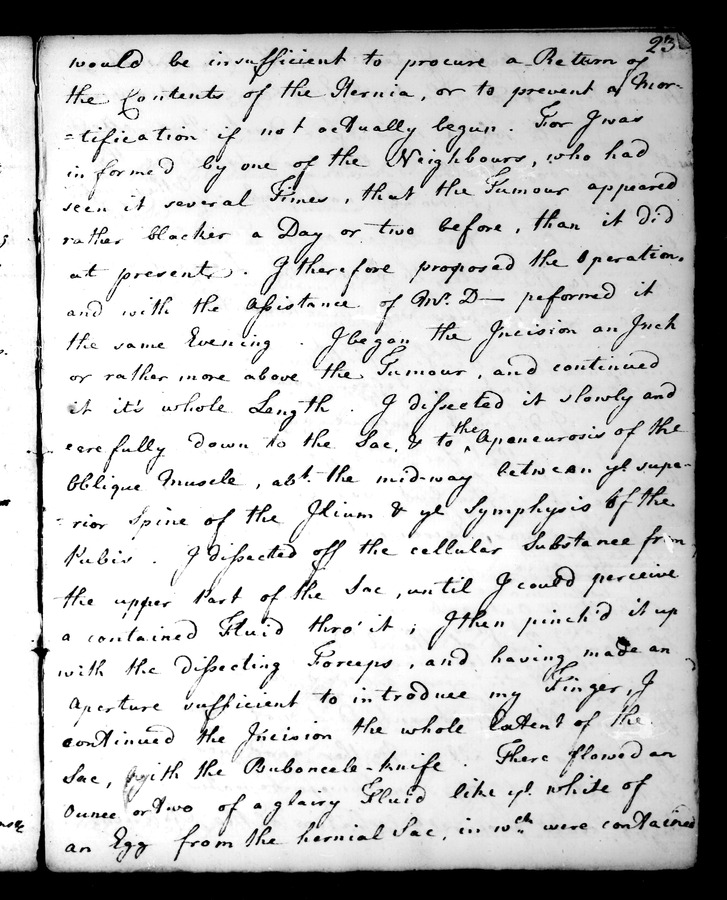 23
would be insufficient to procure a Return of
the Contents of the Hernia, or to prevent a Mor-
=tification if not actually begun. For I was
informed by one of the Neighbours, who had
seen it several Times, that the Tumour appeared
rather blacker a Day or two before, than it did
at present. I therefore proposed the Operation,
and with the Assistance of Mr. D— peformed it
the same Evening. I began the Incision an Inch
or rather more above the Tumour, and continued
it it's whole Length. I dissected it slowly and
carefully down to the Sac, & to the Aponeurosis of the
Oblique Muscle, abt. the mid-way between ye. supe-
-rior Spine of the Ilium & ye Symphysis of the
Pubis. I dissected off the cellular Substance from
the upper Part of the Sac, until I could perceive
a contained Fluid thro' it; I then pinch'd it up
with the dissecting Forceps, and having made an
Aperture sufficient to introduce my Finger, I
continued the Incision the whole Extent of the
Sac, with the Bubonocele-knife. There flowed an
Ounce or two of a glairy Fluid like ye. white of
an Egg from the hernial Sac, in wch. were contained